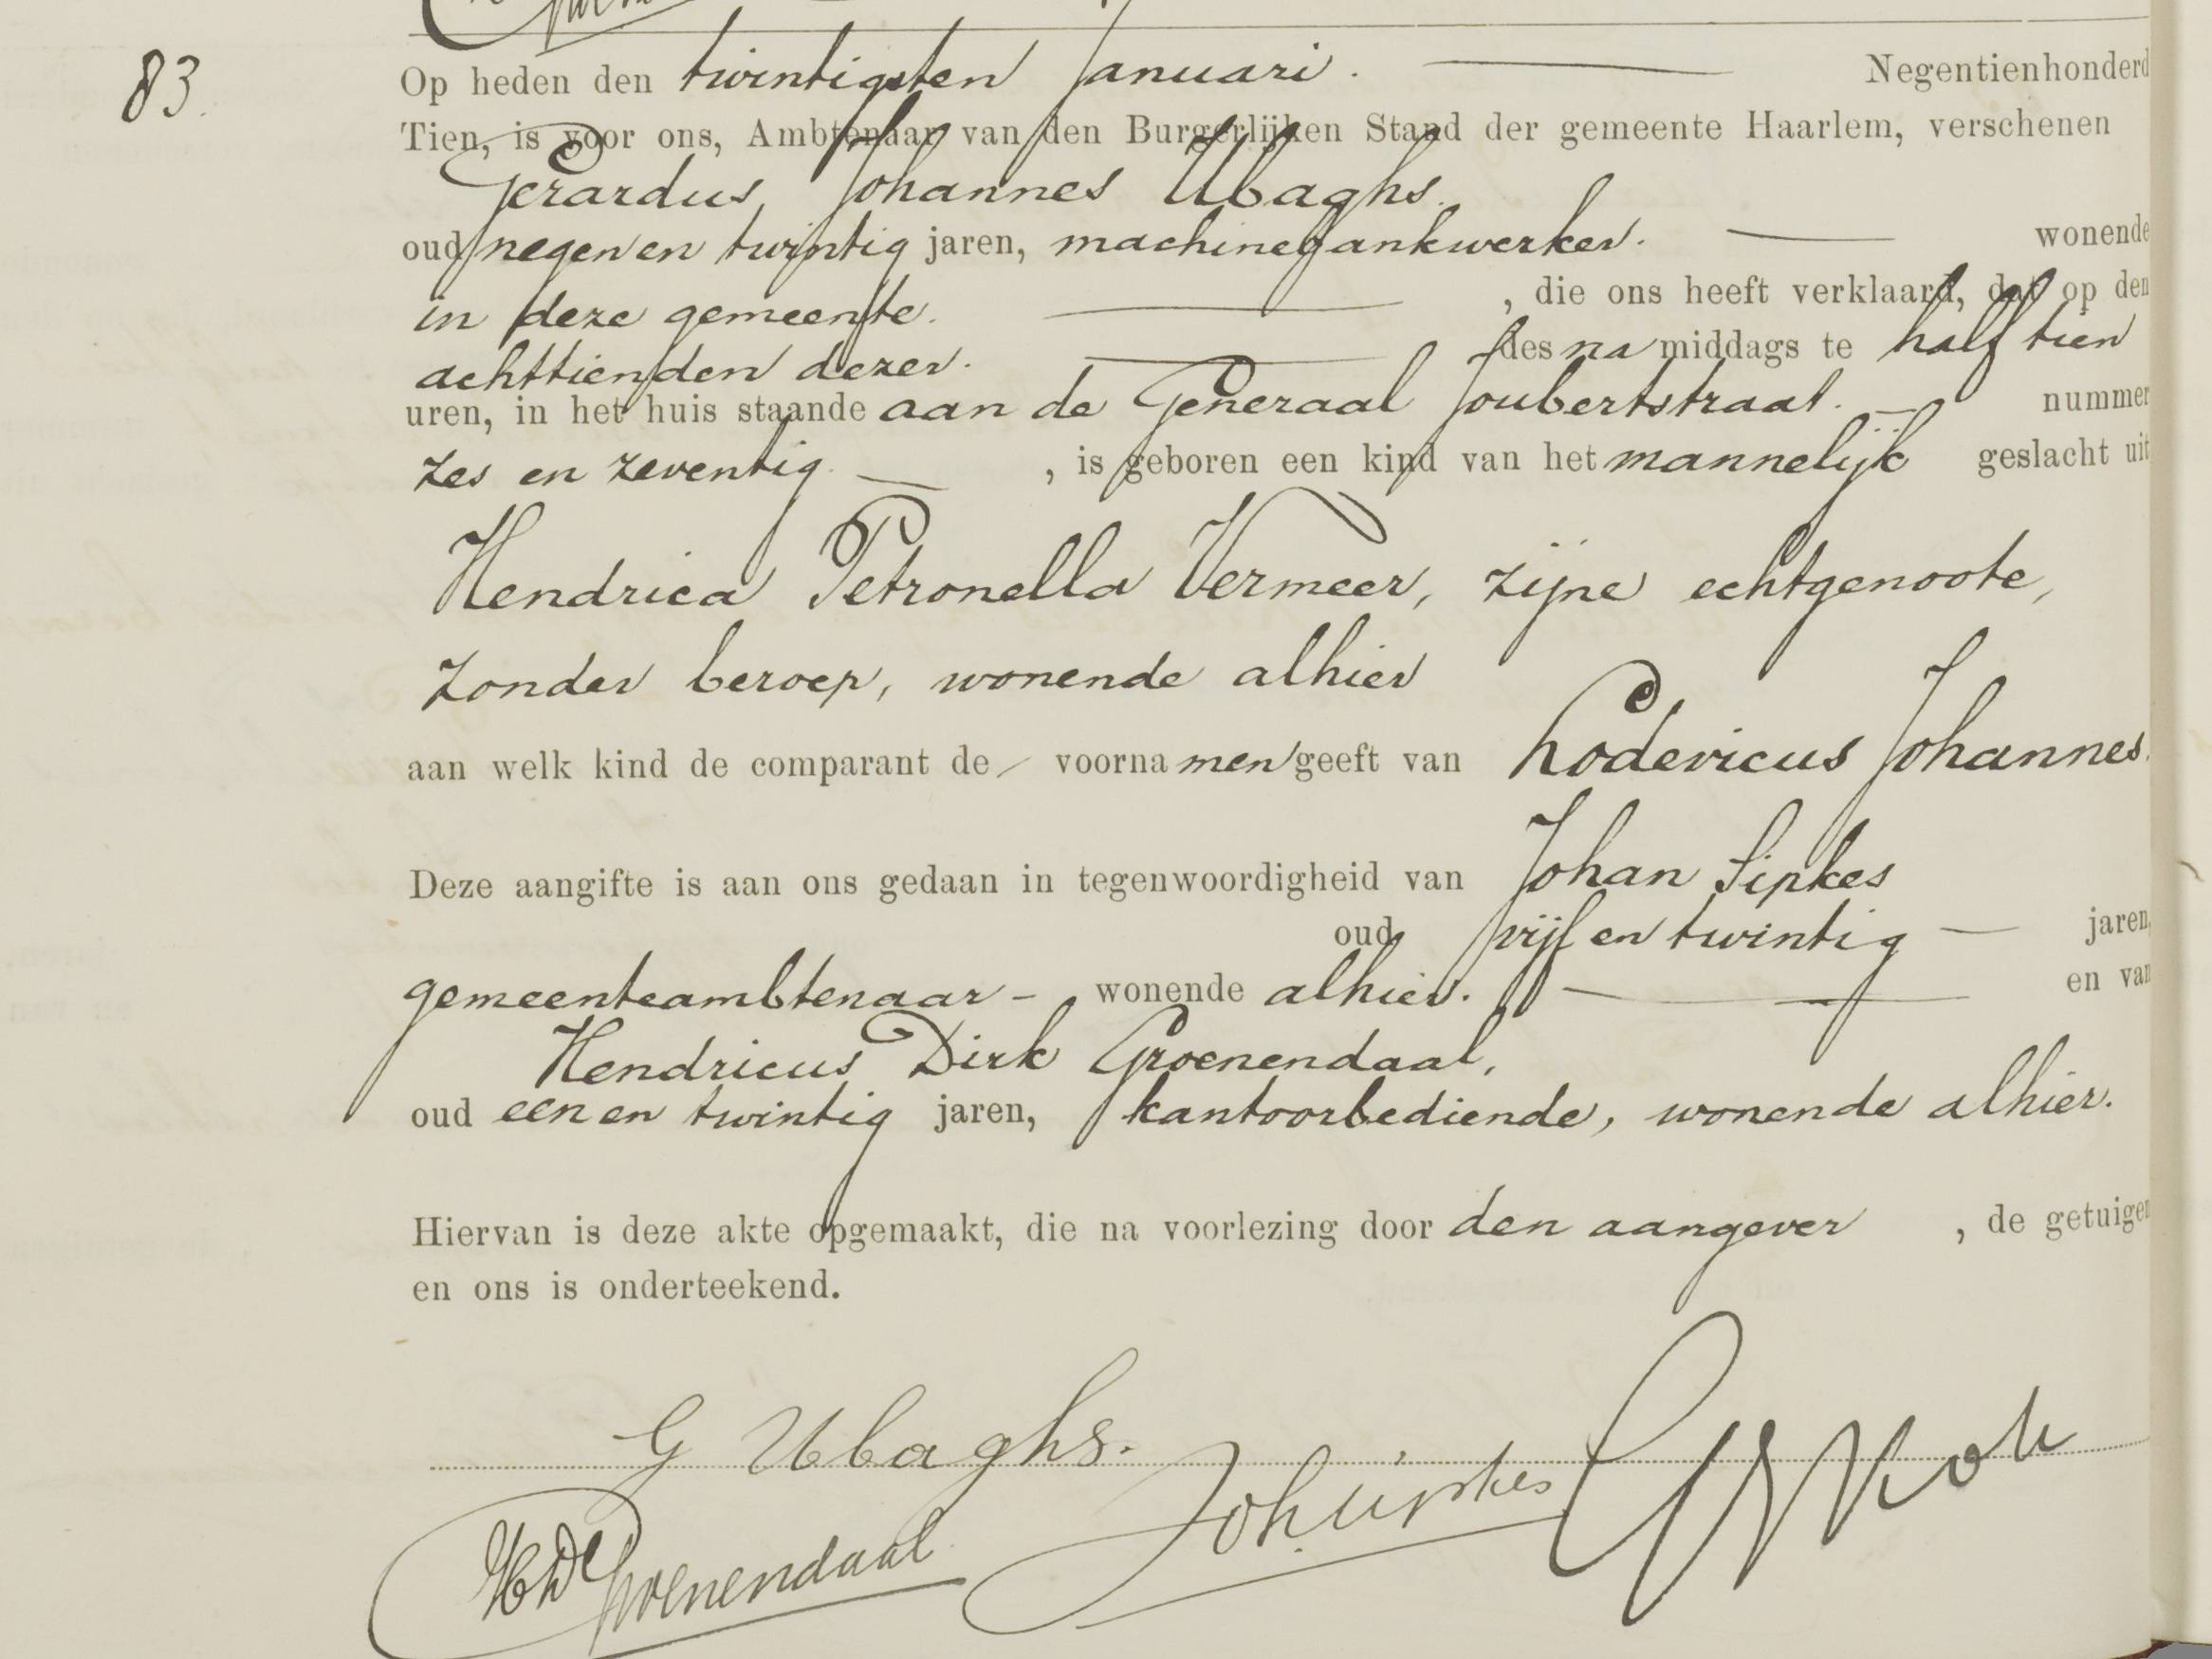 83.
Op heden den twintigsten Januari. Negentienhonderd
Tien, is voor ons, Ambtenaar van den Burgerlijken Stand der gemeente Haarlem, verschenen
Gerardus Johannes Ubaghs.
oud negen en twintig jaren, machinebankwerker. wonende
in deze gemeente. , die ons heeft verklaard, dat op den
achttienden dezer. des namiddags te half tien
uren, in het huis staande aan de Generaal Joubertstraat. nummer
zes en zeventig , is geboren een kind van het mannelijk geslacht uit
Hendrica Petronella Vermeer, zijne echtgenoote,
zonder beroep, wonende alhier
aan welk kind de voornamen geeft van Lodevicus Johannes.
Deze aangifte is aan ons gedaan in tegenwoordigheid van Johan Sipkes
oud vijf en twintig jaren,
gemeenteambtenaar - wonende alhier. en van
Hendricus Dirk Groenendaal,
oud een en twintig jaren, kantoorbediende, wonende alhier.
Hiervan is deze akte opgemaakt, die na voorlezing door den aangever , de getuigen
en ons is onderteekend.
G Ubaghs.
HD Groenendaal Joh. Sipkes